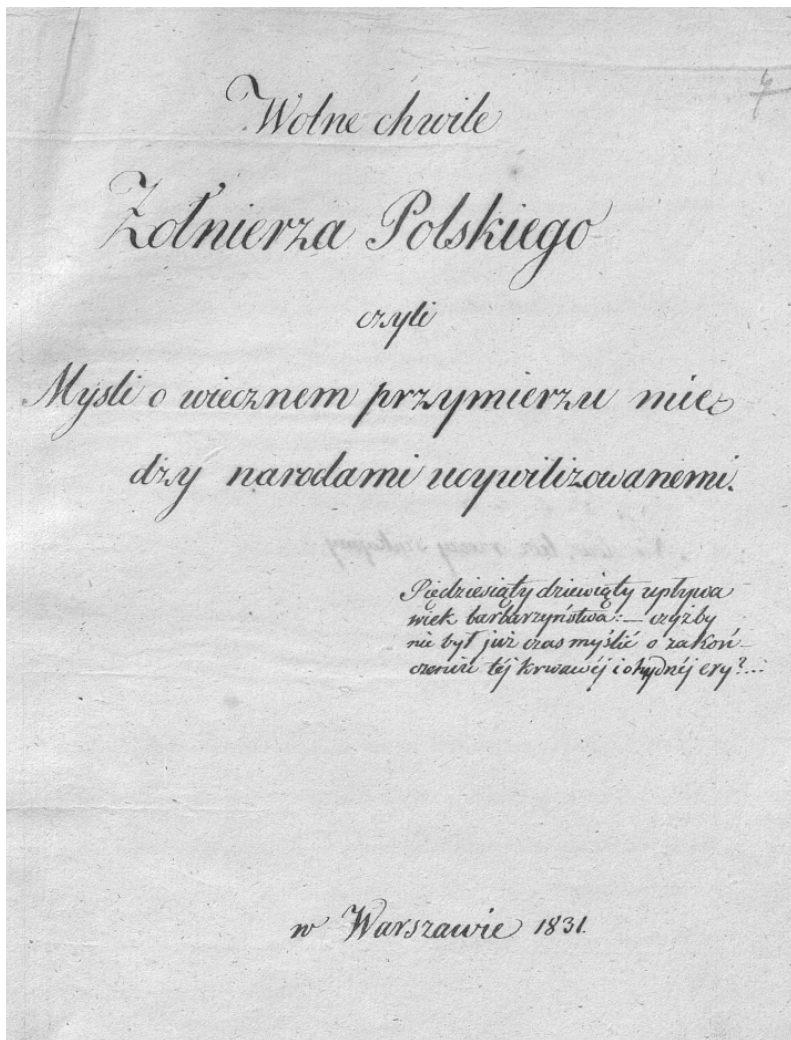 7
Wolne chwile
Żołnierza Polskiego
czyli
Mysli o wiecznem przymierzu mie-
dzy narodami ucywilizowanemi.
Pięćdziesiąty dziewiąty upływa
wiek barbarzyństwa: — czyżby
nie był już czas myślić o zakoń-
czeniu téj krwawéj i ohydnéj ery?...
w Warszawie 1831.